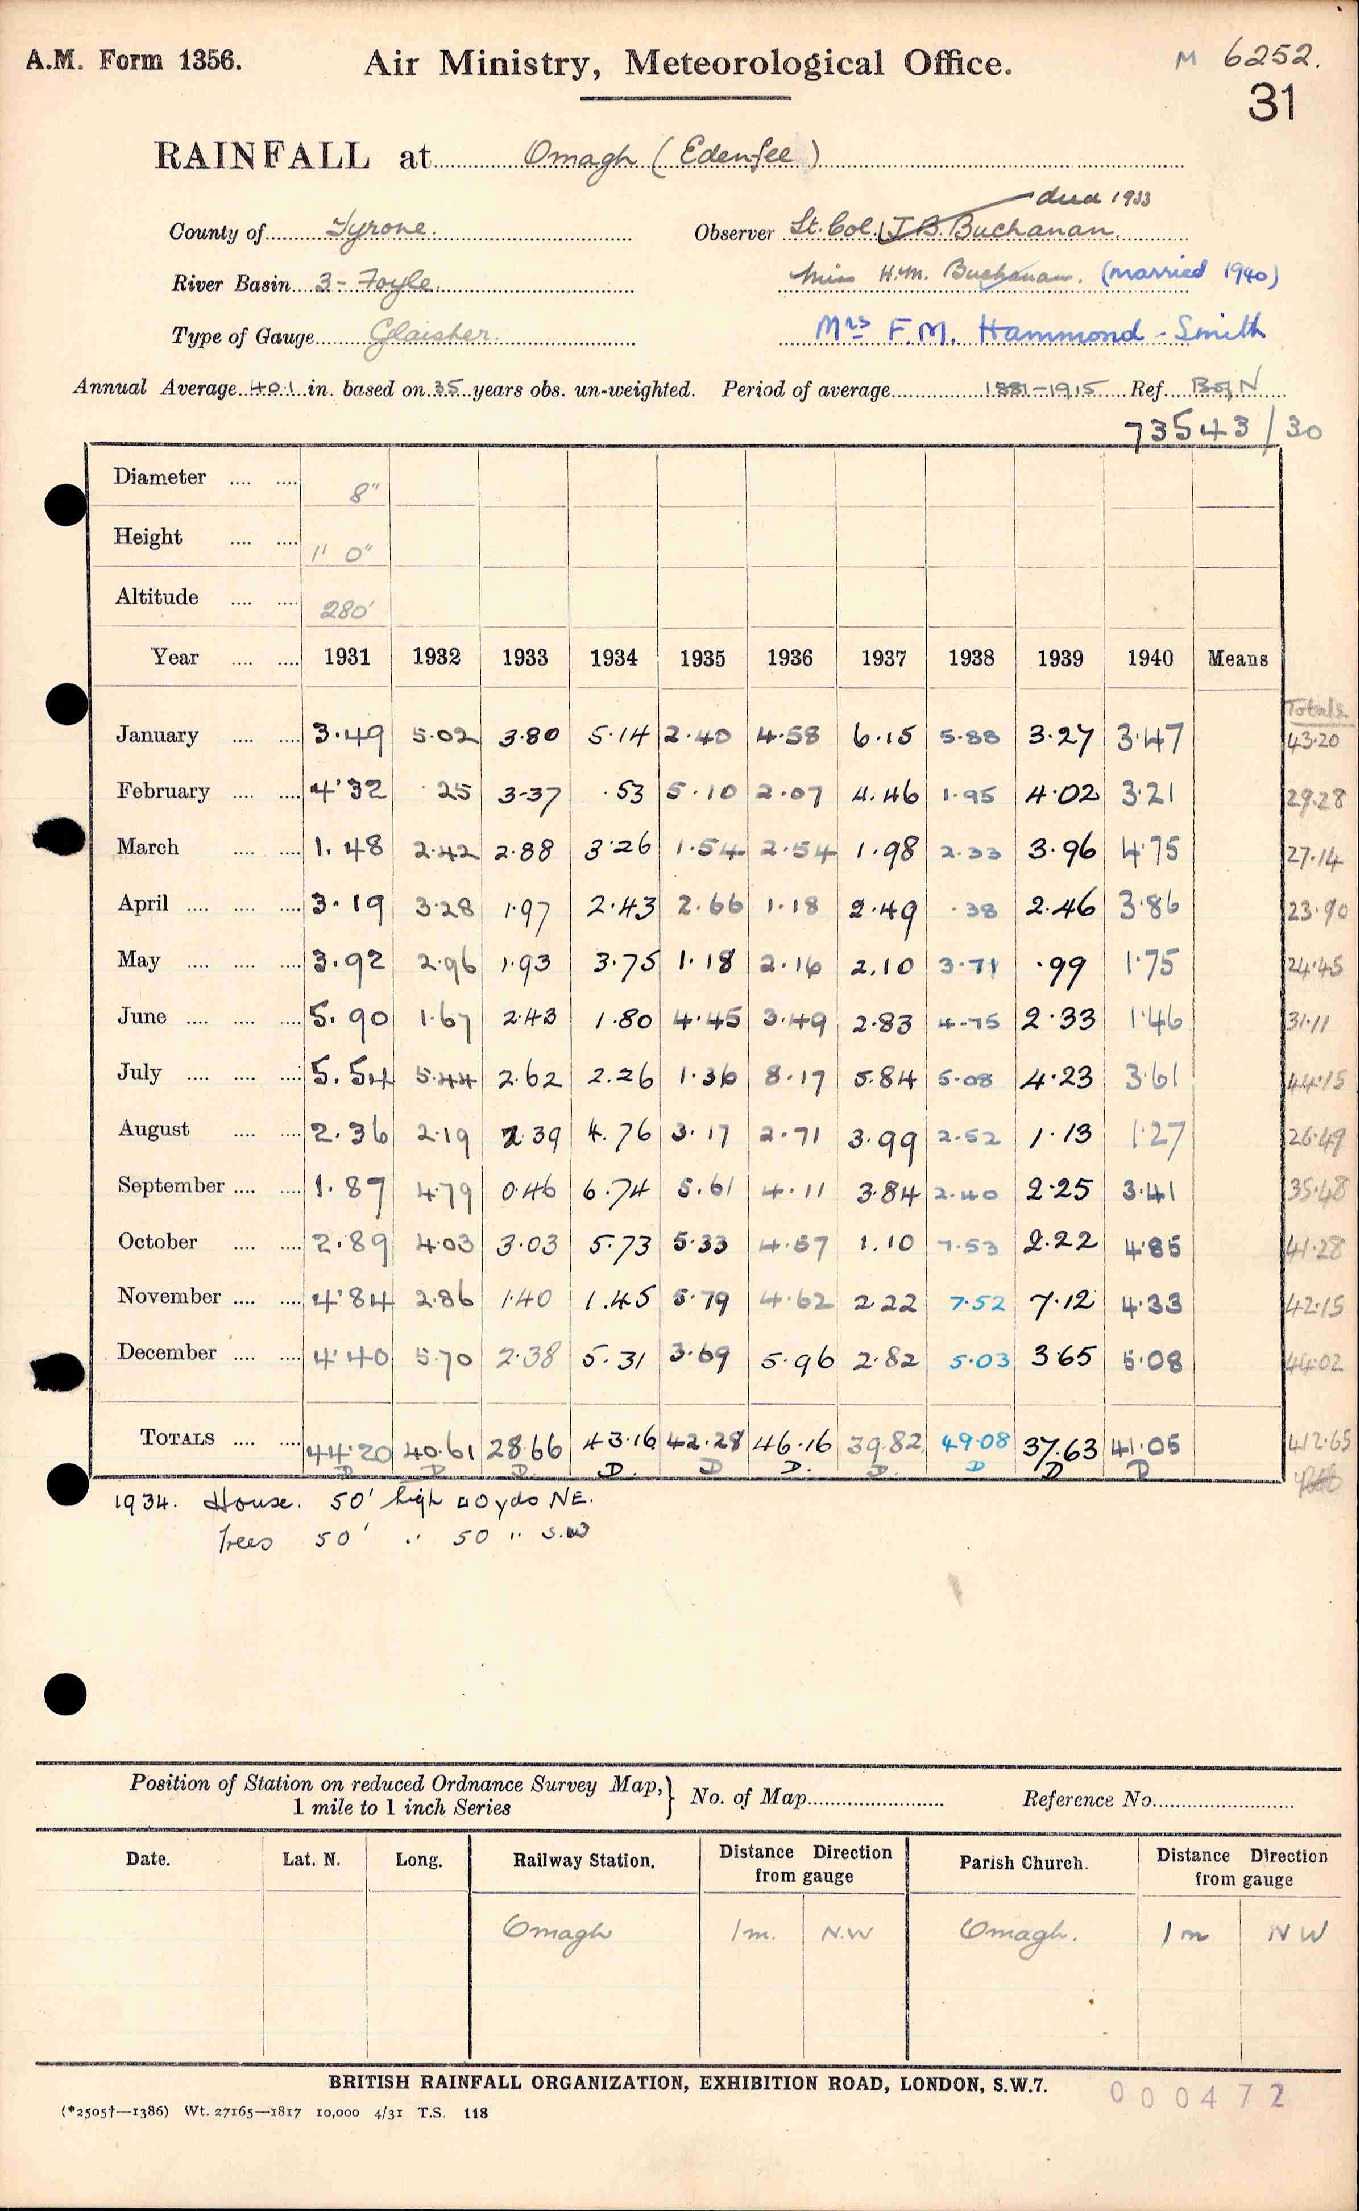 A.M. Form 1356.
Air Ministry, Meteorological Office.
M 6252.
31
RAINFALL at Omagh (Edenfel)
died 1933
County of Tyrone. Observer Lt. Col. J.B. Buchanan.
River Basin 3 - Foyle. Miss H.M. Buchanan. (married 1940)
Type of Gauge Glaisher. Mrs F.M. Hammond-Smith
Annual Average 40.1 in. based on 35 years obs. un-weighted. Period of average 1881-1915 Ref. B of N
73543/30
Diameter .... .... 8"
Height .... .... 1' 0"
Altitude .... .... 280'
Year .... .... 1931 1932 1933 1934 1935 1936 1937 1938 1939 1940 Means
Totals
January .... .... 3.49 5.02 3.80 5.14 2.40 4.58 6.15 5.88 3.27 3.47 43.20
February .... .... 4.32 .25 3.37 .53 5.10 2.07 4.46 1.95 4.02 3.21 29.28
March .... .... 1.48 2.42 2.88 3.26 1.54 2.54 1.98 2.33 3.96 4.75 27.14
April .... .... .... 3.19 3.28 1.97 2.43 2.66 1.18 2.49 .38 2.46 3.86 23.90
May .... .... .... 3.92 2.96 1.93 3.75 1.18 2.16 2.10 3.71 .99 1.75 24.45
June .... .... .... 5.90 1.67 2.43 1.80 4.45 3.49 2.83 4.75 2.33 1.46 31.11
July .... .... .... 5.54 5.44 2.62 2.26 1.36 8.17 5.84 5.08 4.23 3.61 44.15
August .... .... 2.36 2.19 2.39 4.76 3.17 2.71 3.99 2.52 1.13 1.27 26.49
September .... .... 1.87 4.79 0.46 6.74 5.61 4.11 3.84 2.40 2.25 3.41 35.48
October .... .... 2.89 4.03 3.03 5.73 5.33 4.57 1.10 7.53 2.22 4.85 41.28
November .... .... 4.84 2.86 1.40 1.45 5.79 4.62 2.22 7.52 7.12 4.33 42.15
December .... .... 4.40 5.70 2.38 5.31 3.69 5.96 2.82 5.03 3.65 5.08 44.02
TOTALS .... .... 44.20 40.61 28.66 43.16 42.28 46.16 39.82 49.08 37.63 41.05 412.65
D D D. D. D D. D. D D D
1934. House. 50' high 40 yds NE.
Trees 50' " 50 " S.W
Position of Station on reduced Ordnance Survey Map,
1 mile to 1 inch Series } No. of Map Reference No.
Date. Lat. N. Long. Railway Station. Distance Direction from gauge Parish Church. Distance Direction from gauge
Omagh 1 m. N.W Omagh. 1 m N W
BRITISH RAINFALL ORGANIZATION, EXHIBITION ROAD, LONDON, S.W.7.
000472
(*2505†—1386) Wt. 27165—1817 10,000 4/31 T.S. 118